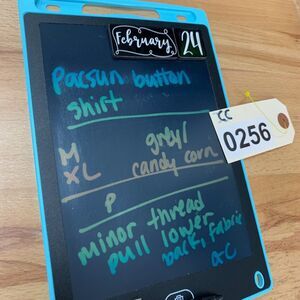 February 24
CC
0256
Pacsun button
shirt
M grey/
XL candy corn
P
minor thread
pull lower
back, Fabric